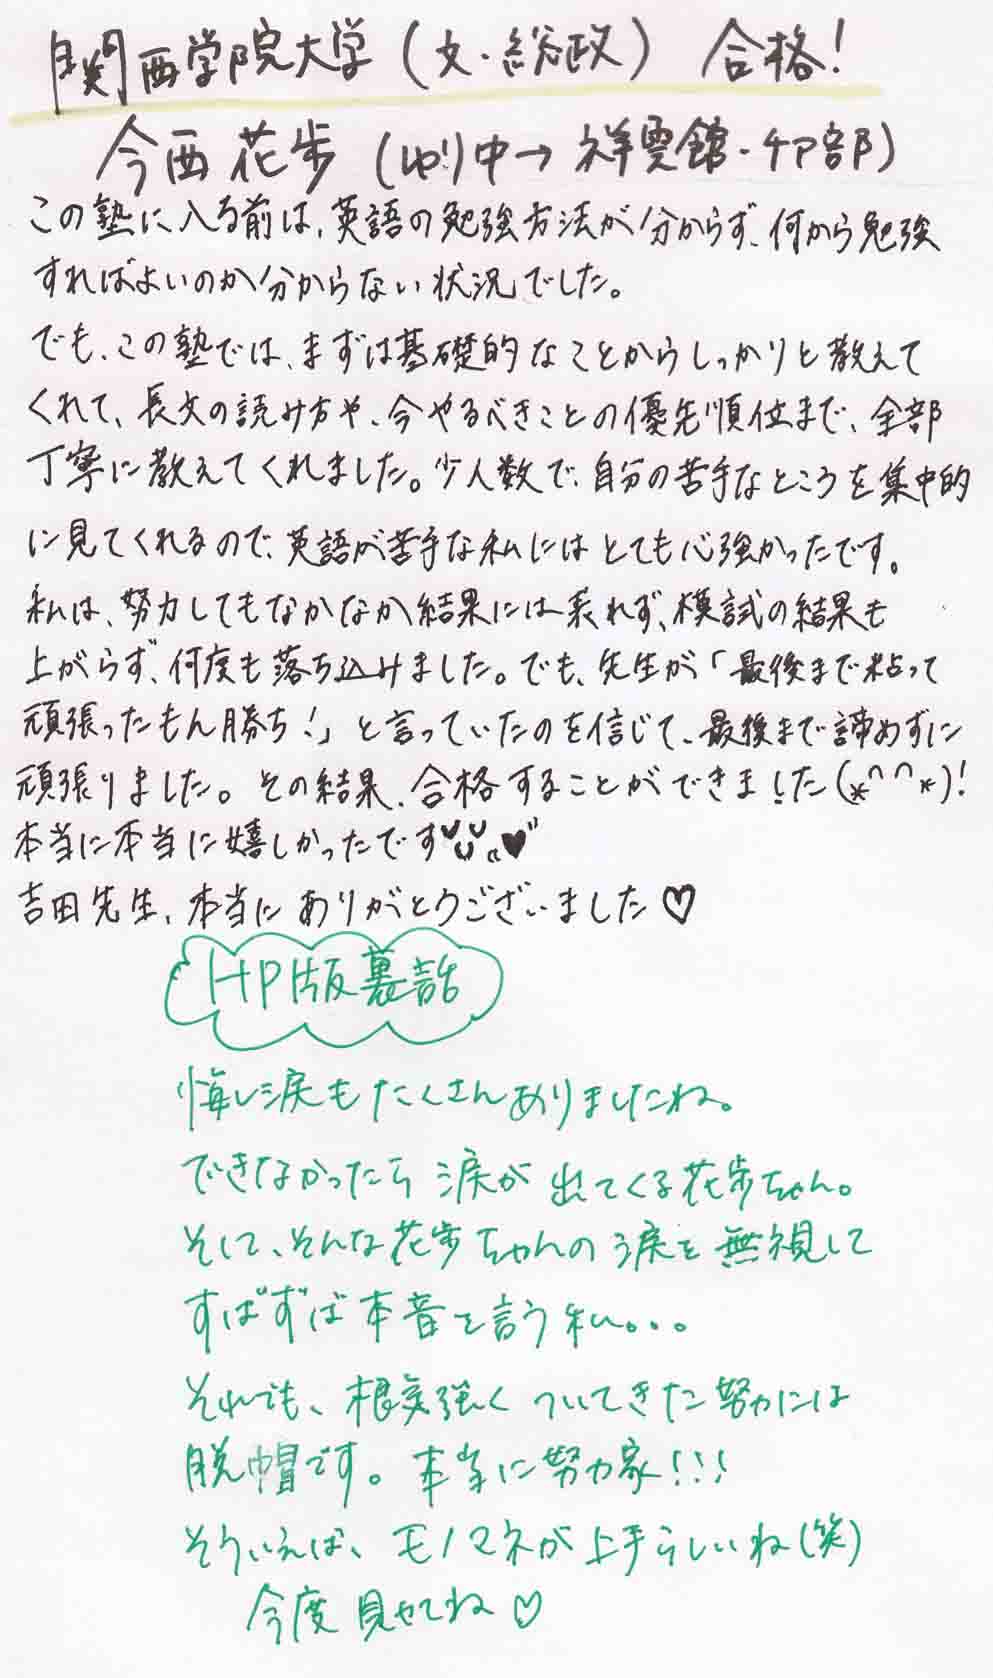 関西学院大学(文・総政) 合格!
今西花歩(ゆり中→祥雲館・チア部)
この塾に入る前は、英語の勉強方法が分からず、何から勉強
すればよいのか分からない状況でした。
でも、この塾では、まずは基礎的なことからしっかりと教えて
くれて、長文の読み方や、今やるべきことの優先順位まで、全部
丁寧に教えてくれました。少人数で、自分の苦手なところを集中的
に見てくれるので、英語が苦手な私にはとても心強かったです。
私は、努力してもなかなか結果には表れず、模試の結果も
上がらず、何度も落ち込みました。でも、先生が「最後まで粘って
頑張ったもん勝ち!」と言っていたのを信じて、最後まで諦めずに
頑張りました。その結果、合格することができました(*^^*)!
本当に本当に嬉しかったです
吉田先生、本当にありがとうございました♡
HP版裏話
悔し涙もたくさんありましたね。
できなかったら涙が出てくる花歩ちゃん。
そして、そんな花歩ちゃんの涙を無視して
ずばずば本音を言う私。。。
それでも、根気強くついてきた努力には
脱帽です。本当に努力家!!!
そういえば、モノマネが上手らしいね(笑)
今度見せてね♡